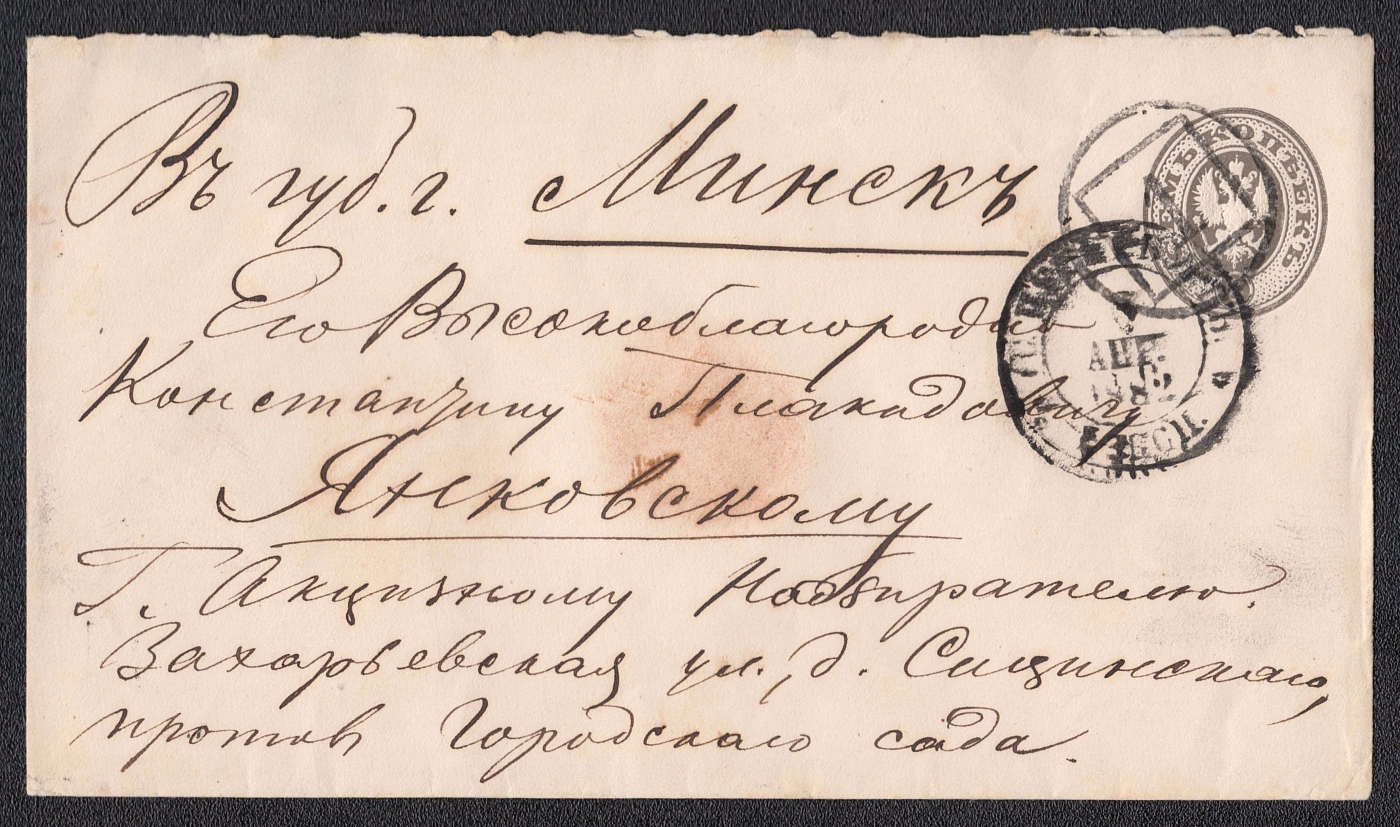 Въ губ. г. Минскъ
Его Высокоблагородію
Константину Плакидовичу
Янковскому
Г. Акцизному Надзирателю.
Захарьевская ул., д. Сищинскаго,
противъ Городскаго сада.
СЕМЬ КОПѢЕКЪ
АПР.